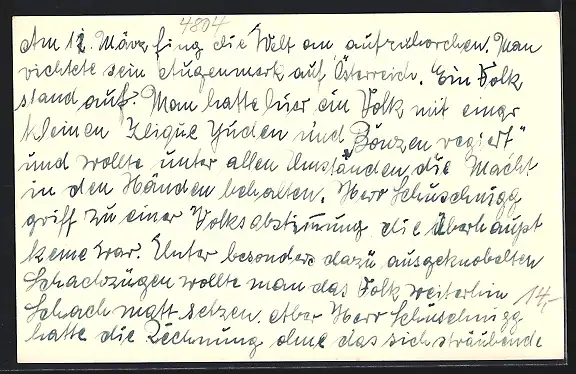 4804
Am 12. März fing die Welt an aufzuhorchen. Man
richtete sein Augenmerk auf Österreich. "Ein Volk
stand auf". Man hatte hier ein Volk mit einer
kleinen Klique Juden und "Bonzen regiert"
und wollte unter allen Umständen die Macht
in den Händen behalten. Herr Schuschnigg
griff zu einer Volksabstimmung die überhaupt
keine war. Unter besonders dazu ausgeknobelten
Schachzügen wollte man das Volk weiterhin 14,-
Schach matt setzen. Aber Herr Schuschnigg
hatte die Rechnung ohne das sich sträubende